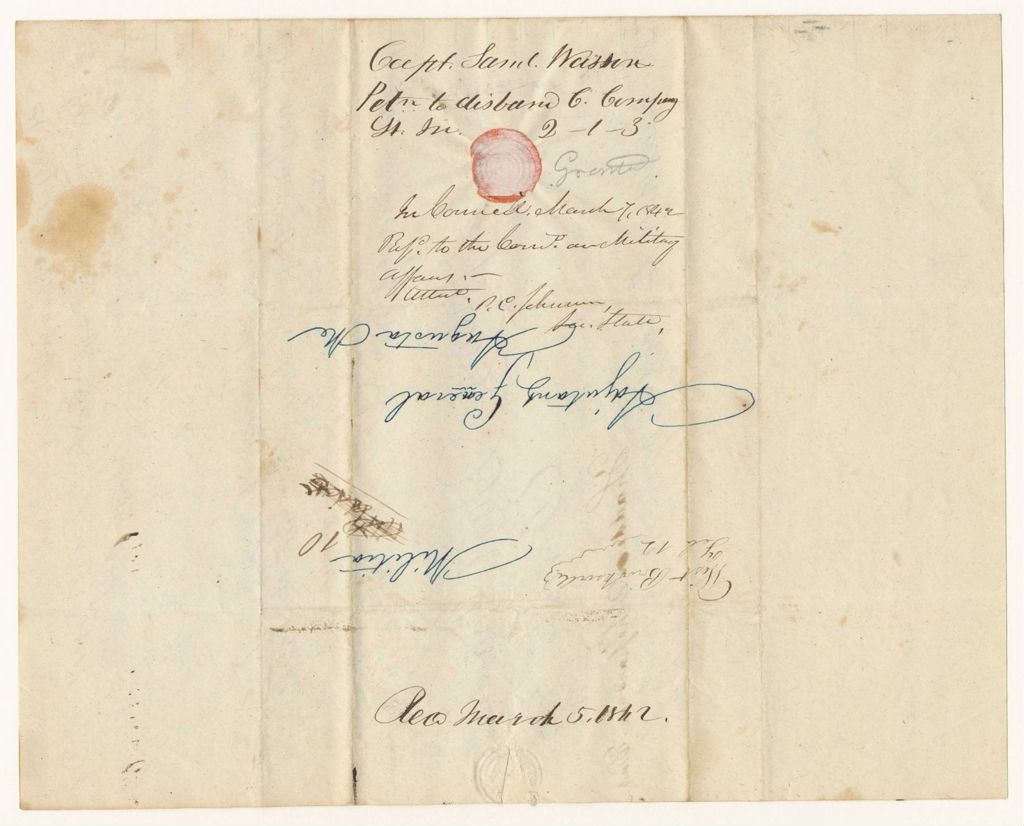 Capt. Saml. Wasson
Petn to disband C. Company
Lt. In. 2-1-3
Granted.
In Council, March 7, 1842
Refd. to the Comt. on Military
affairs.
Attest,
P. C. Johnson,
Sec. State,
Augusta Me
Adjutant General
Militia 10
West Brooksville
Feb 12
Recd March 5, 1842.